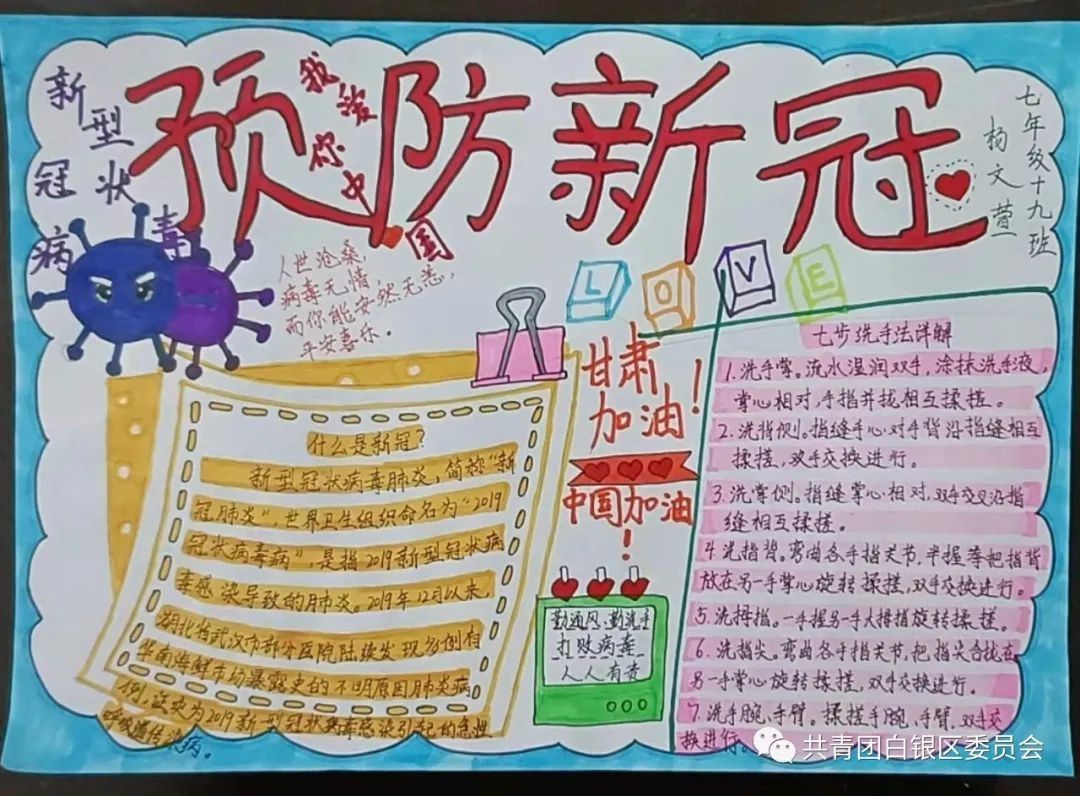 预防新冠
新型冠状病毒
我爱你中国
七年级十九班
杨文萱
人世沧桑，
病毒无情，
而你能安然无恙，
平安喜乐。
LOVE
什么是新冠？
新型冠状病毒肺炎，简称“新
冠肺炎”，世界卫生组织命名为“2019
冠状病毒病”，是指2019新型冠状病
毒感染导致的肺炎。2019年12月以来，
湖北省武汉市部分医院陆续发现多例有
华南海鲜市场暴露史的不明原因肺炎病
例，证实为2019新型冠状病毒感染引起的急性
呼吸道传染病。
甘肃
加油！
中国加油
！
勤通风·勤洗手
打败病毒
人人有责
七步洗手法详解
1.洗手掌。流水湿润双手，涂抹洗手液，
掌心相对，手指并拢相互揉搓。
2.洗背侧。指缝手心对手背沿指缝相互
揉搓，双手交换进行。
3.洗掌侧。指缝掌心相对，双手交叉沿指
缝相互揉搓。
4.洗指背。弯曲各手指关节，半握拳把指背
放在另一手掌心旋转揉搓，双手交换进行。
5.洗拇指。一手握另一手大拇指旋转揉搓。
6.洗指尖。弯曲各手指关节，把指尖合拢在
另一手掌心旋转揉搓，双手交换进行。
7.洗手腕，手臂。揉搓手腕，手臂，双手交
换进行。
共青团白银区委员会